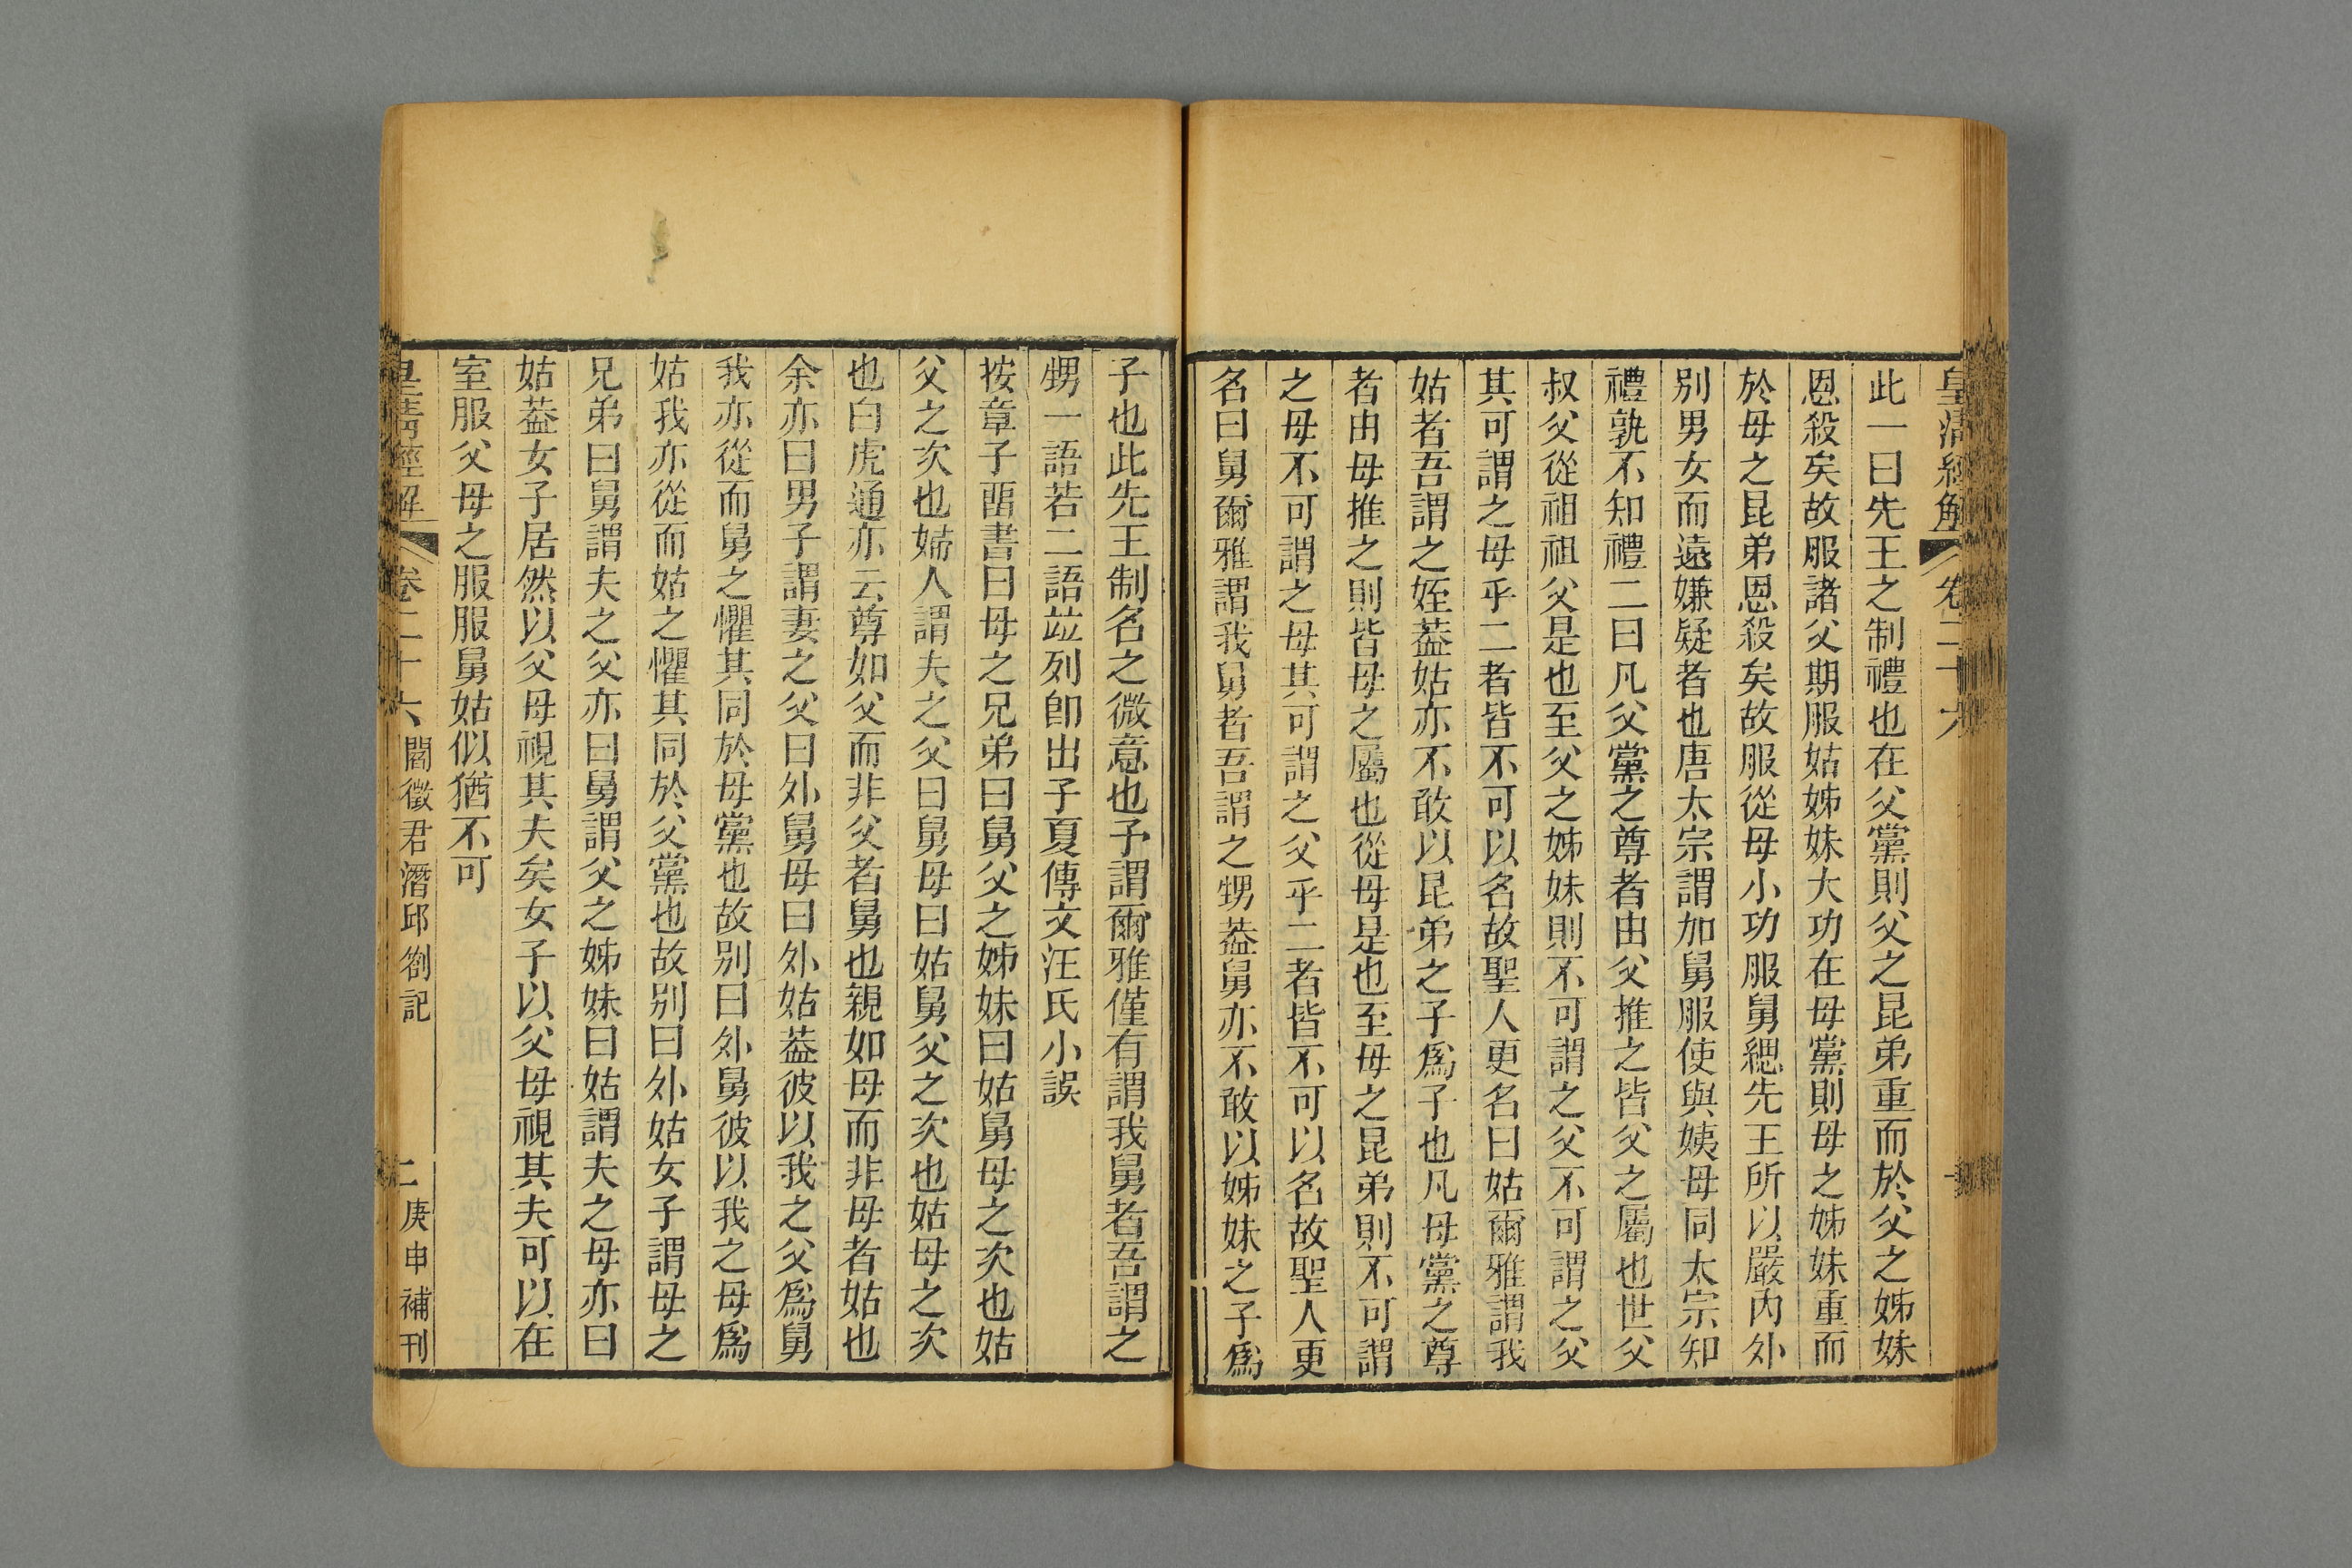 皇清經解 卷二十六
此一曰先王之制禮也在父黨則父之昆弟重而於父之姊妹
恩殺矣故服諸父期服姑姊妹大功在母黨則母之姊妹重而
於母之昆弟恩殺矣故服從母小功服舅緦先王所以嚴內外
別男女而遠嫌疑者也唐太宗謂加舅服使與姨母同太宗知
禮孰不知禮二曰凡父黨之尊者由父推之皆父之屬也世父
叔父從祖祖父是也至父之姊妹則不可謂之父不可謂之父
其可謂之母乎二者皆不可以名故聖人更名曰姑爾雅謂我
姑者吾謂之姪葢姑亦不敢以昆弟之子爲子也凡母黨之尊
者由母推之則皆母之屬也從母是也至母之昆弟則不可謂
之母不可謂之母其可謂之父乎二者皆不可以名故聖人更
名曰舅爾雅謂我舅者吾謂之甥葢舅亦不敢以姊妹之子爲
子也此先王制名之微意也予謂爾雅僅有謂我舅者吾謂之
甥一語若二語竝列卽出子夏傳文汪氏小誤
按章子酉書曰母之兄弟曰舅父之姊妹曰姑舅母之次也姑
父之次也婦人謂夫之父曰舅母曰姑舅父之次也姑母之次
也白虎通亦云尊如父而非父者舅也親如母而非母者姑也
余亦曰男子謂妻之父曰外舅母曰外姑葢彼以我之父爲舅
我亦從而舅之懼其同於母黨也故別曰外舅彼以我之母爲
姑我亦從而姑之懼其同於父黨也故別曰外姑女子謂母之
兄弟曰舅謂夫之父亦曰舅謂父之姊妹曰姑謂夫之母亦曰
姑葢女子居然以父母視其夫矣女子以父母視其夫可以在
室服父母之服服舅姑似猶不可
皇清經解 卷二十六 閻徵君潛邱劄記 二 庚申補刊